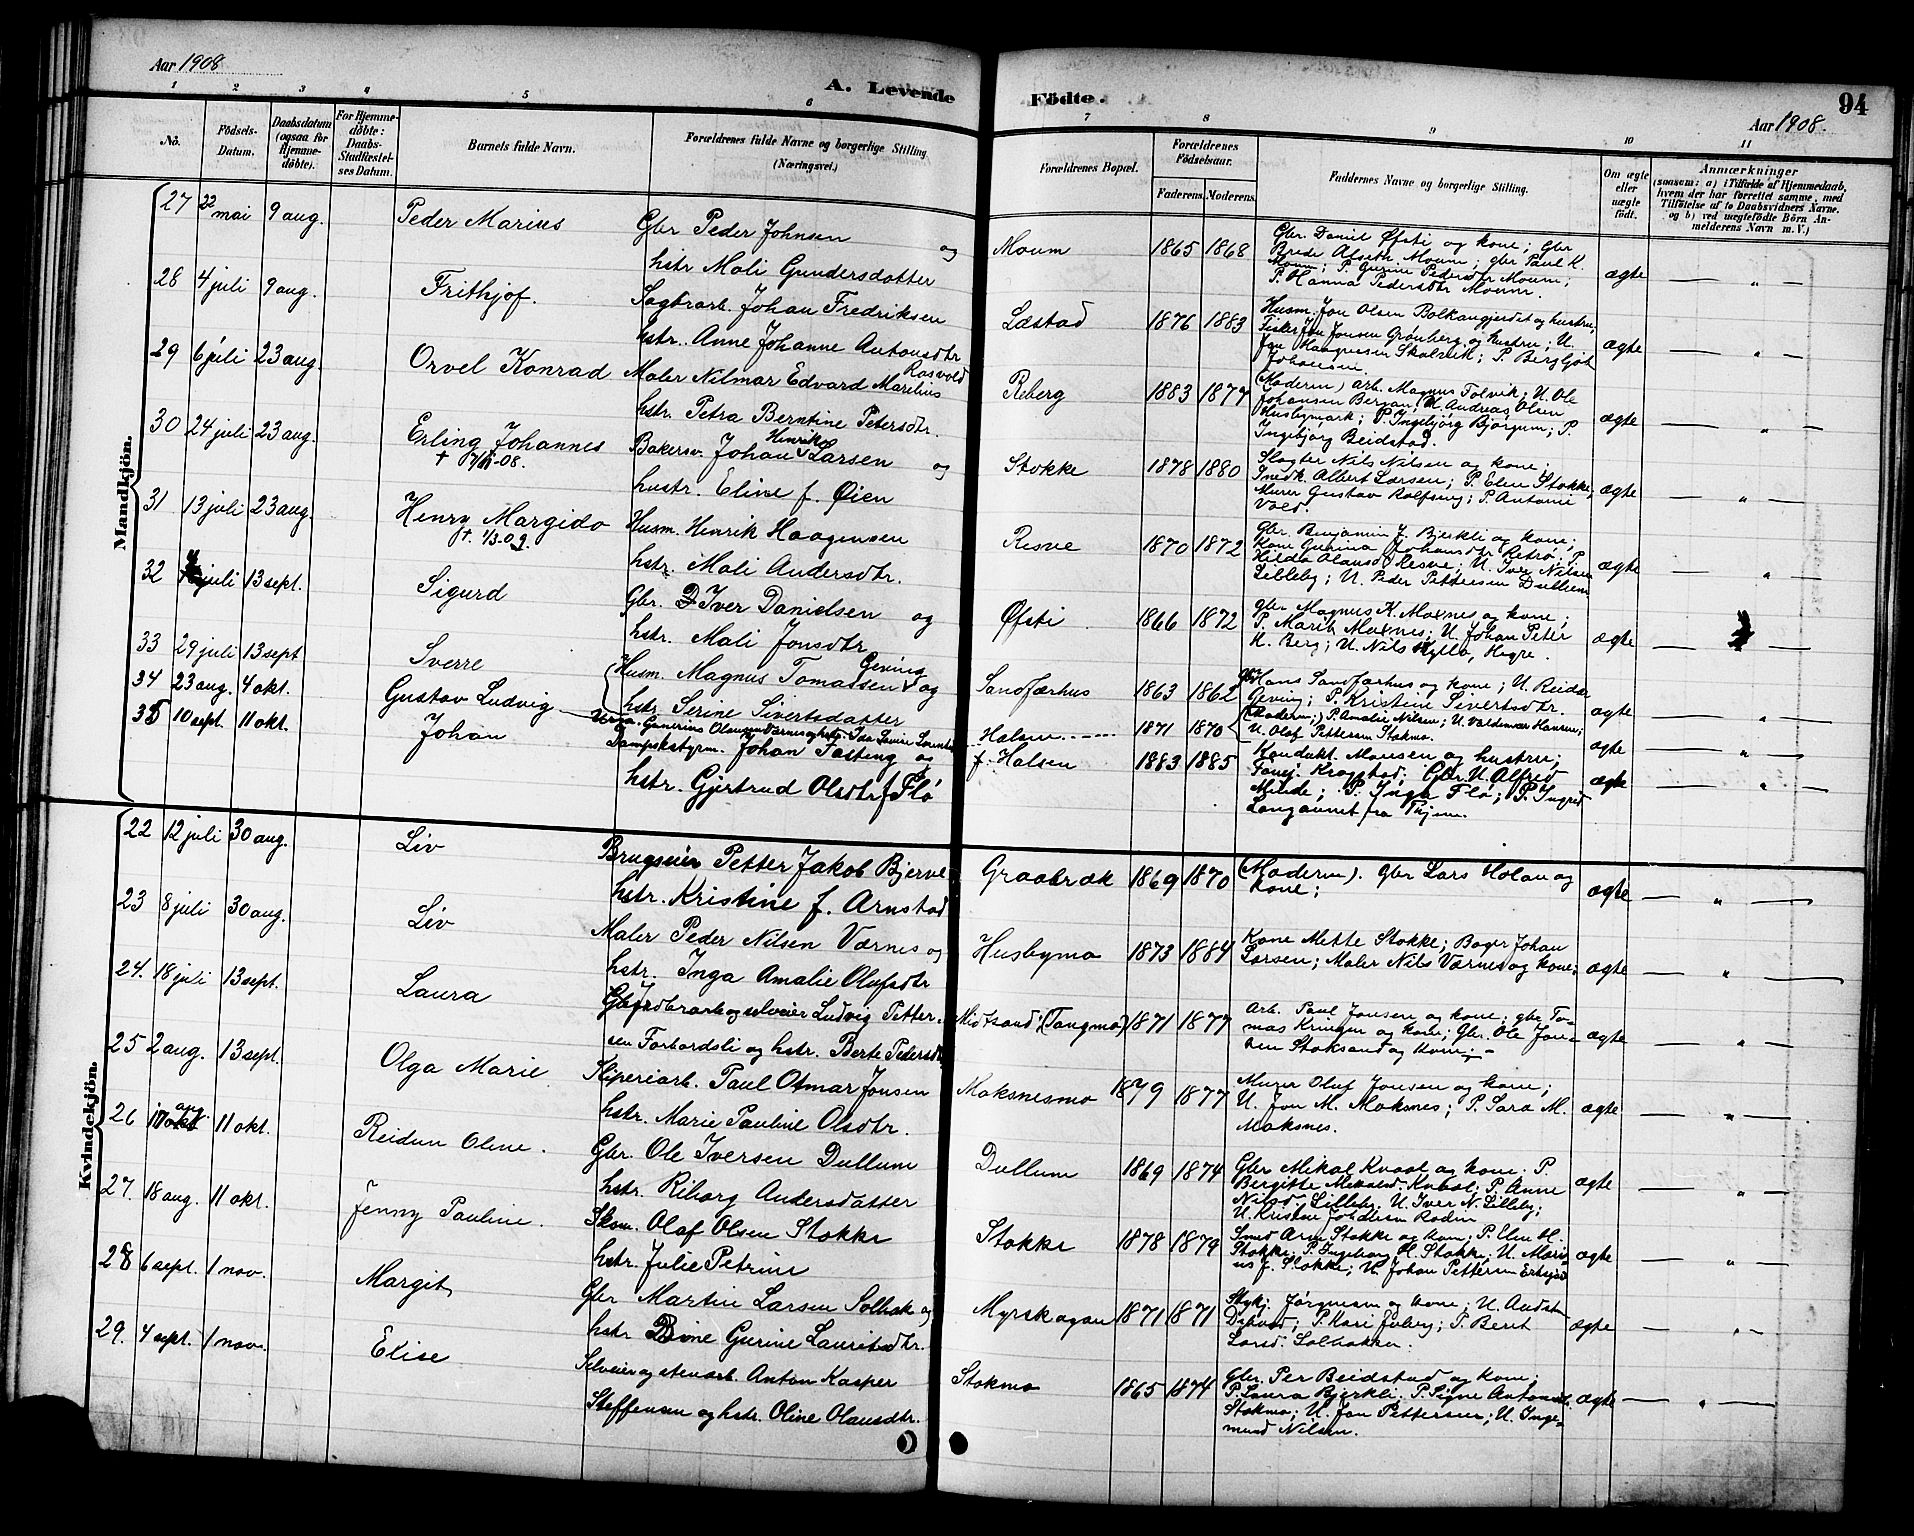 Aar 1908
A. Levende
Fødte.
94
Aar 1908.
1 2 3 4 5 6 7 8 9 10 11
No.
Födsels-Datum.
Daabsdatum (ogsaa for Hjemme-döbte).
For Hjemme-döbte: Daabs-Stadfæstel-ses Datum.
Barnets fulde Navn.
Forældrenes fulde Navne og borgerlige Stilling (Næringsvei.)
Forældrenes Bopæl.
Forældrenes Födselsaar.
Faderens. Moderens.
Faddernes Navne og borgerlige Stilling.
Om ægte eller uægte födt.
Anmærkninger
(saasom: a) i Tilfælde af Hjemmedaab, hvem der har forrettet samme, med Tilföielse af to Daabsvidners Navne, og b) ved uægtefödte Börn An-melderens Navn m. V.)
Mandkjön.
27 22 mai 9 aug. Peder Marius Gbr Peder Johnsen og
hstr Mali Gundersdatter
Moum 1865 1868
Gbr. Daniel Øfsti og kone; Gbr
Brede Alseth. Moum; gbr Paul K.
Moum; P. Gurine Pedersdtr Moum;
P. Hanna Pedersdtr Moum.
ægte — " —
28 4 juli 9 aug. Frithjof. Sagbrarb. Johan Fredriksen
hstr. Anne Johanne Antonsdtr
Læstad 1876 1883
Husm. Jon Olsen Bolkangjerdet og hustru,
Fisker Jon Jonsen Grønberg og hustru; U.
Jon Haagensen Skalvik; P. Bergljot
Johansen.
ægte — " —
29 6 juli 23 aug. Orvel Konrad Maler Nilmar Edvard Marelius Rosvold
hstr. Petra Berntine Petersdtr.
Reberg 1883 1877
(Moderen) arb. Magnus Folvik; U. Ole
Johansen Bergan; U. Andreas Olsen
Husbymark; P. Ingebjørg Bjørgum; P.
Ingebjørg Beidstad.
ægte — " —
30 24 juli 23 aug. Erling Johannes Bakersv. Johan Henrik Larsen og
hustr. Eline f. Øien
Stokke 1878 1880
Slagter Nils Nilsen og kone;
Snedk. Albert Larsen; P. Elen Stokke,
Murer Gustav Rolfseng; P. Antonie
Vold.
ægte — " —
31 13 juli 23 aug. Henry Margido
†. 1/3-09.
Husm. Henrik Haagensen
hstr. Mali Andersdtr.
Resve 1870 1872
gbr. Benjamin J. Bjerkli og kone;
Kone Gurina Johansdtr Retrø; P.
Hilda Olausd. Resve; U. Iver Nilsen
Lilleby; U. Peder Pettersen Dullum
ægte — " —
32 juli 13 sept. Sigurd Gbr. Iver Danielsen og
hstr. Mali Jonsdtr
Øfsti 1866 1872
gbr Magnus K. Moxnes og kone;
P. Marit Moxnes; U. Johan Peter
H. Berg; U. Nils Hyllo, Hegre.
ægte —
33 29 juli 13 sept Sverre Husm. Magnus Tomassen Geving og
hstr Serine Sivertsdatter
Sandfærhus 1863 1862
Hans Sandfærhus og kone; U. Reidar
Geving; P. Kristine Sivertsdtr.
ægte — " —
34 23 aug. 4 okt. Gustav Ludvig
Halsen 1871 1870
(Moderen;) P. Amalie Nilsen; U. Valdemar Hansen;
U. Olaf Pettersen Stokmo.
ægte — " —
35 10 sept. 11 okt. Johan Dampskstyrm. Johan Fasteng og
hstr. Gjertrud Olsdtr f. Flø
f. Halsen 1883 1885
Kondukt. Monsen og hustru;
Fanej. Krogstad. Gbr. U. Alfred
Milde; P. Inga Flø; P. Ingrid
Langaunet fra Thjem.
ægte — " —
Kvindekjön.
22 12 juli 30 aug. Liv Brugseier Petter Jakob Bjerve
hstr. Kristine f. Arnstad
Graabræk 1869 1870
(Moderen). Gbr Lars Holan og
kone;
ægte — " —
23 8 juli 30 aug. Liv Maler Peder Nilsen Værnes og
hstr. Inga Amalie Olufsdtr
Husbymo 1873 1884
Kone Mette Stokke; Bager Johan
Larsen; Maler Nils Værnes og kone;
ægte — " —
24. 18 juli 13 sept. Laura Jrdbrarb og selveier Ludvig Petter-
sen Forbordsli og hstr. Berte Pedersdtr
Midtsand (Tangmo) 1871 1877
Arb. Paul Jonsen og kone; gbr To-
mas Kringen og kone; Gbr. Ole Jon-
sen Stoksand og kone;
ægte — " —
25 2 aug. 13 sept. Olga Marie Sliperiarb. Paul Otmar Jonsen
hstr. Marie Pauline Olsdtr.
Moksnesmo 1879 1877
Murer Oluf Jonsen og kone;
U. Jon M. Moksnes; P. Sara M.
Moksnes.
ægte — " —
26 17 aug. 11 okt. Reidun Oline. Gbr. Ole Iversen Dullum
hstr. Riborg Andersdatter
Dullum 1869 1874
Gbr Mikal Kvaal og kone. P.
Bergitte Mikalsd. Kvaal; P. Anne
Nilsd. Lilleby. U. Iver N. Lilleby;
U. Kristen Johansen Rodin
ægte — " —
27. 18 aug. 11 okt. Jenny Pauline. Skom. Olaf Olsen Stokke
hstr. Julie Petrine
Stokke 1878 1879
Smed Arn Stokke og kone; P. Elen H.
Stokke; P. Ingeborg H. Stokke; U. Mari-
us J. Stokke; U. Johan Pettersen
ægte — " —
28 6 sept. 1 nov. Margit Gbr Martin Larsen Solbak og
hstr. Gurine Lauritsdtr.
Myrskogan 1871 1871
Stykj. Jørgensen og kone; U.
P. Kari P. Berit
Larsd. Solbakken.
ægte — " —
29. 4 sept. 1 nov. Elise Selveier og stenarb. Anton Kasper
Steffensen og hstr. Oline Olausdtr.
Stokmo 1865 1874
Gbr. Per Beidstad og kone;
P. Laura Bjerkli. P. Signe Antonsd.
Stokmo; U. Jon Pettersen; U. Inge-
mund Nilsen.
ægte — " —